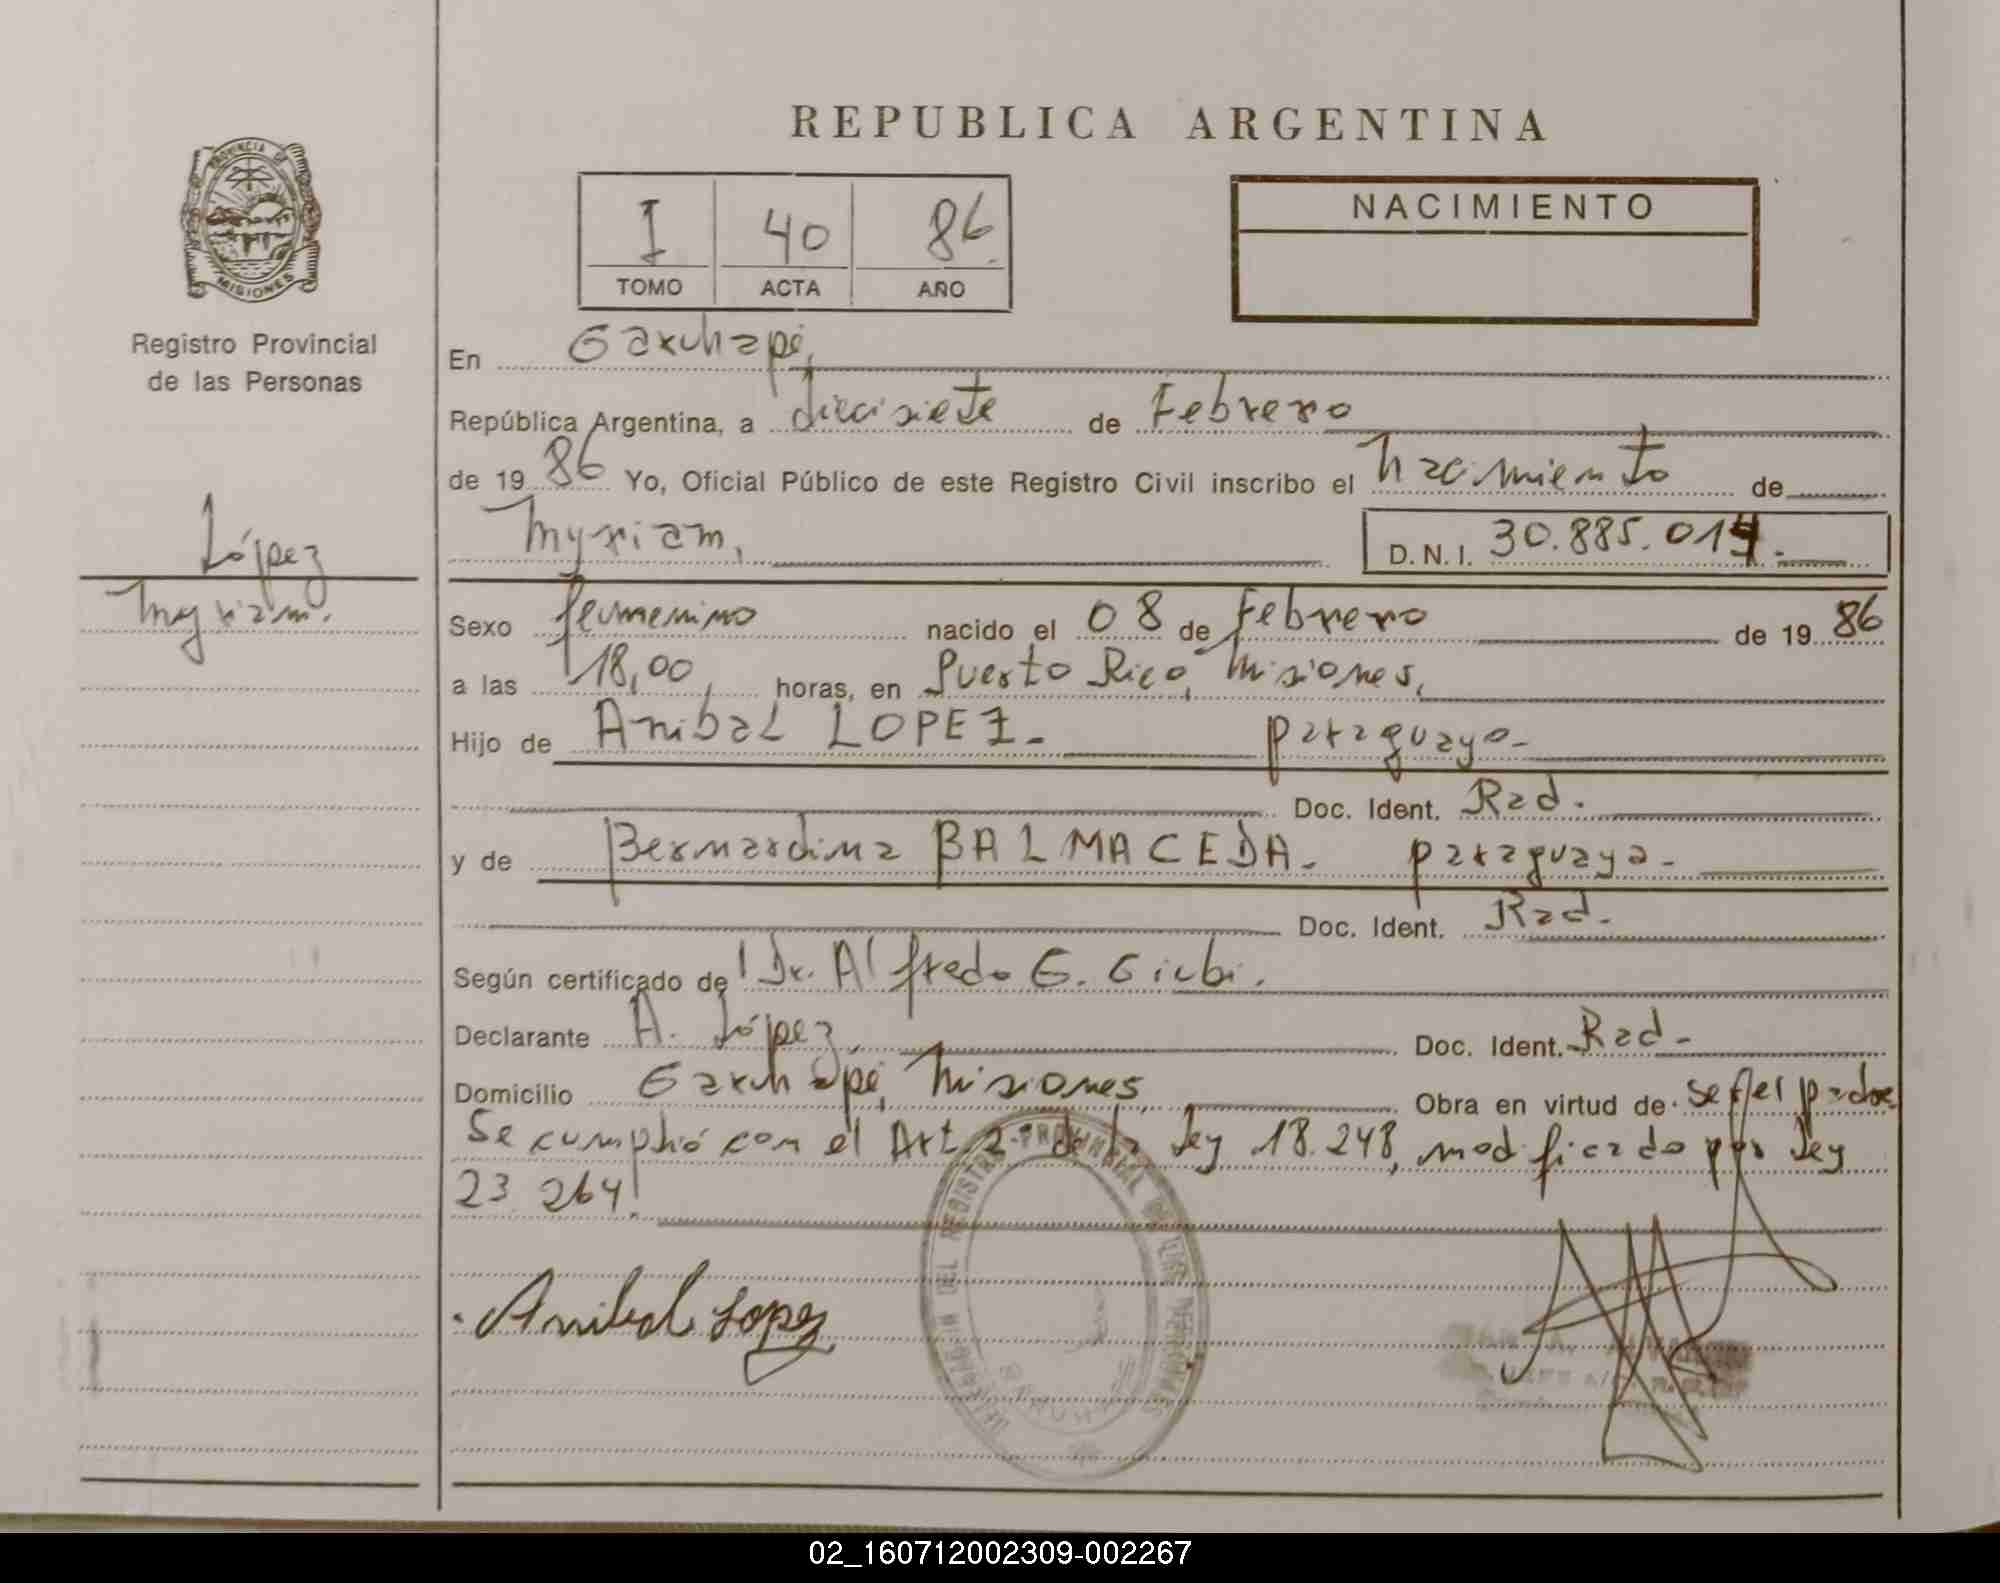 REPUBLICA ARGENTINA
PROVINCIA DE
MISIONES
Registro Provincial
de las Personas
I 40 86
TOMO ACTA AÑO
NACIMIENTO
En Garuhapé,
República Argentina, a diecisiete de Febrero
de 19 86 Yo, Oficial Público de este Registro Civil inscribo el nacimiento de
Myriam,
D.N.I. 30.885.014.
López
Myriam.
Sexo femenino nacido el 08 de Febrero de 19 86
a las 18,00 horas, en Puerto Rico, Misiones,
Hijo de Anibal LOPEZ- paraguayo-
Doc. Ident. Rad.
y de Bernardina BALMACEDA- paraguaya-
Doc. Ident. Rad.
Según certificado de Dr. Alfredo G.
Declarante A. López, Doc. Ident. Rad-
Domicilio Garuhapé, Misiones Obra en virtud de ser el padre
Se cumplió con el Art. 2º de la Ley 18.248, modificado por Ley
23.264.
Anibal Lopez
DEL REGISTRO PROVINCIAL DE LAS PERSONAS
02_160712002309-002267